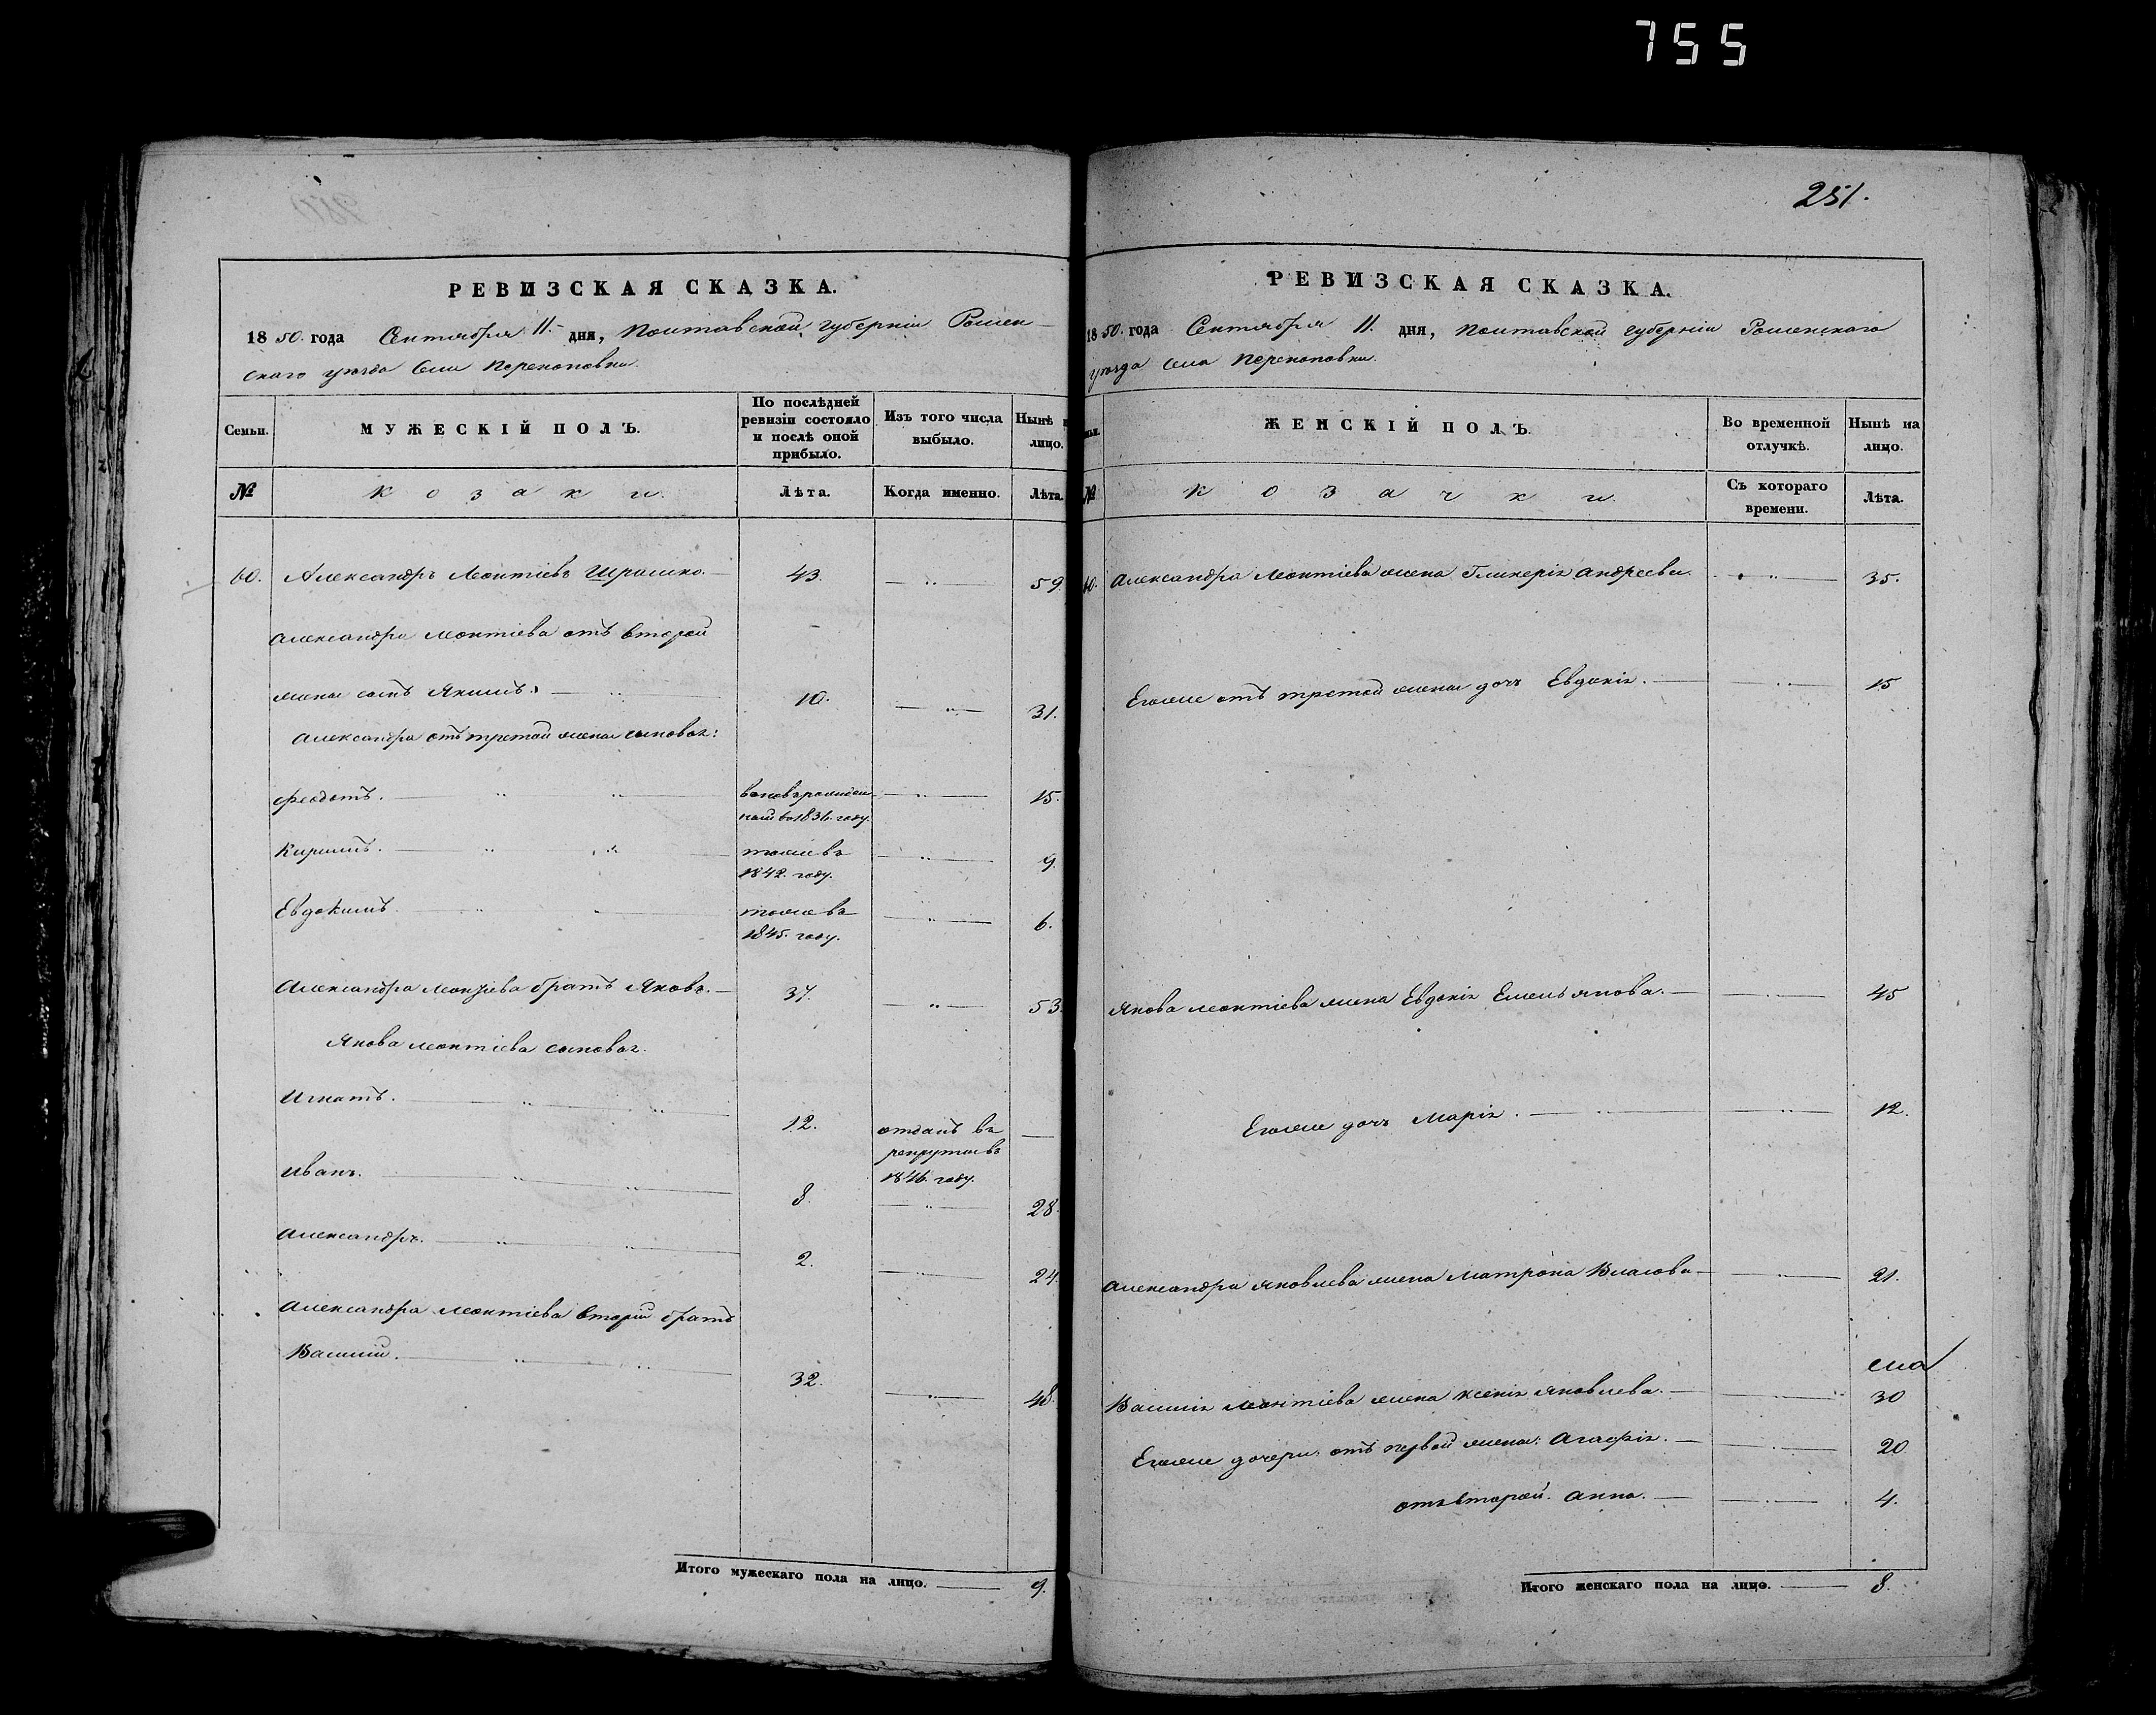 755
251.
РЕВИЗСКАЯ СКАЗКА.
1850. года Сентября 11. дня, Полтавской губерніи Ромен-
скаго уезда Села Перекоповки.
Семьи.
МУЖЕСКІЙ ПОЛЪ.
По послѣдней ревизіи состояло и послѣ оной прибыло.
Изъ того числа выбыло.
Нынѣ н
лицо.
№
козаки.
Лѣта.
Когда именно.
Лѣта.
60. Александръ Леонтіевъ 43. 59
Александра Леонтіева отъ второй
жены сынъ Якимъ. 10. 31.
Александра отъ третей жены сыновья:
Феодотъ. 15.
году.
Кирилъ. тоже въ 9.
1842. году.
Евдокимъ. тоже въ 6.
1845. году.
Александра Леонтіева братъ Яковъ. 37. 53.
Якова Леонтіева сыновья.
Игнатъ. 12. отданъ въ
рекруты въ
1846. году.
Иванъ. 8. 28.
Александръ. 2. 24.
Александра Леонтіева вторый братъ
Василій. 32. 48.
Итого мужескаго пола на лицо. 9.
РЕВИЗСКАЯ СКАЗКА.
1850. года Сентября 11. дня, Полтавской губерніи Роменскаго
уезда села Перекоповки.
ЖЕНСКІЙ ПОЛЪ.
Во временной отлучкѣ.
Нынѣ на лицо.
№
козачки.
Съ котораго времени.
Лѣта.
60. Александра Леонтіева жена Гликерія Андреева. 35.
Егоже отъ третей жены дочь Евдокія. 15
Якова Леонтіева жена Евдокія Емельянова. 45
Егоже дочь Марія. 12.
Александра Яковлева жена Матрона Власова 21.
Василія Леонтіева жена Ксенія Яковлева. 30
Егоже дочери: отъ первой жены: Агафія. 20
отъ второй. Анна. 4.
Итого женскаго пола на лицо. 8.